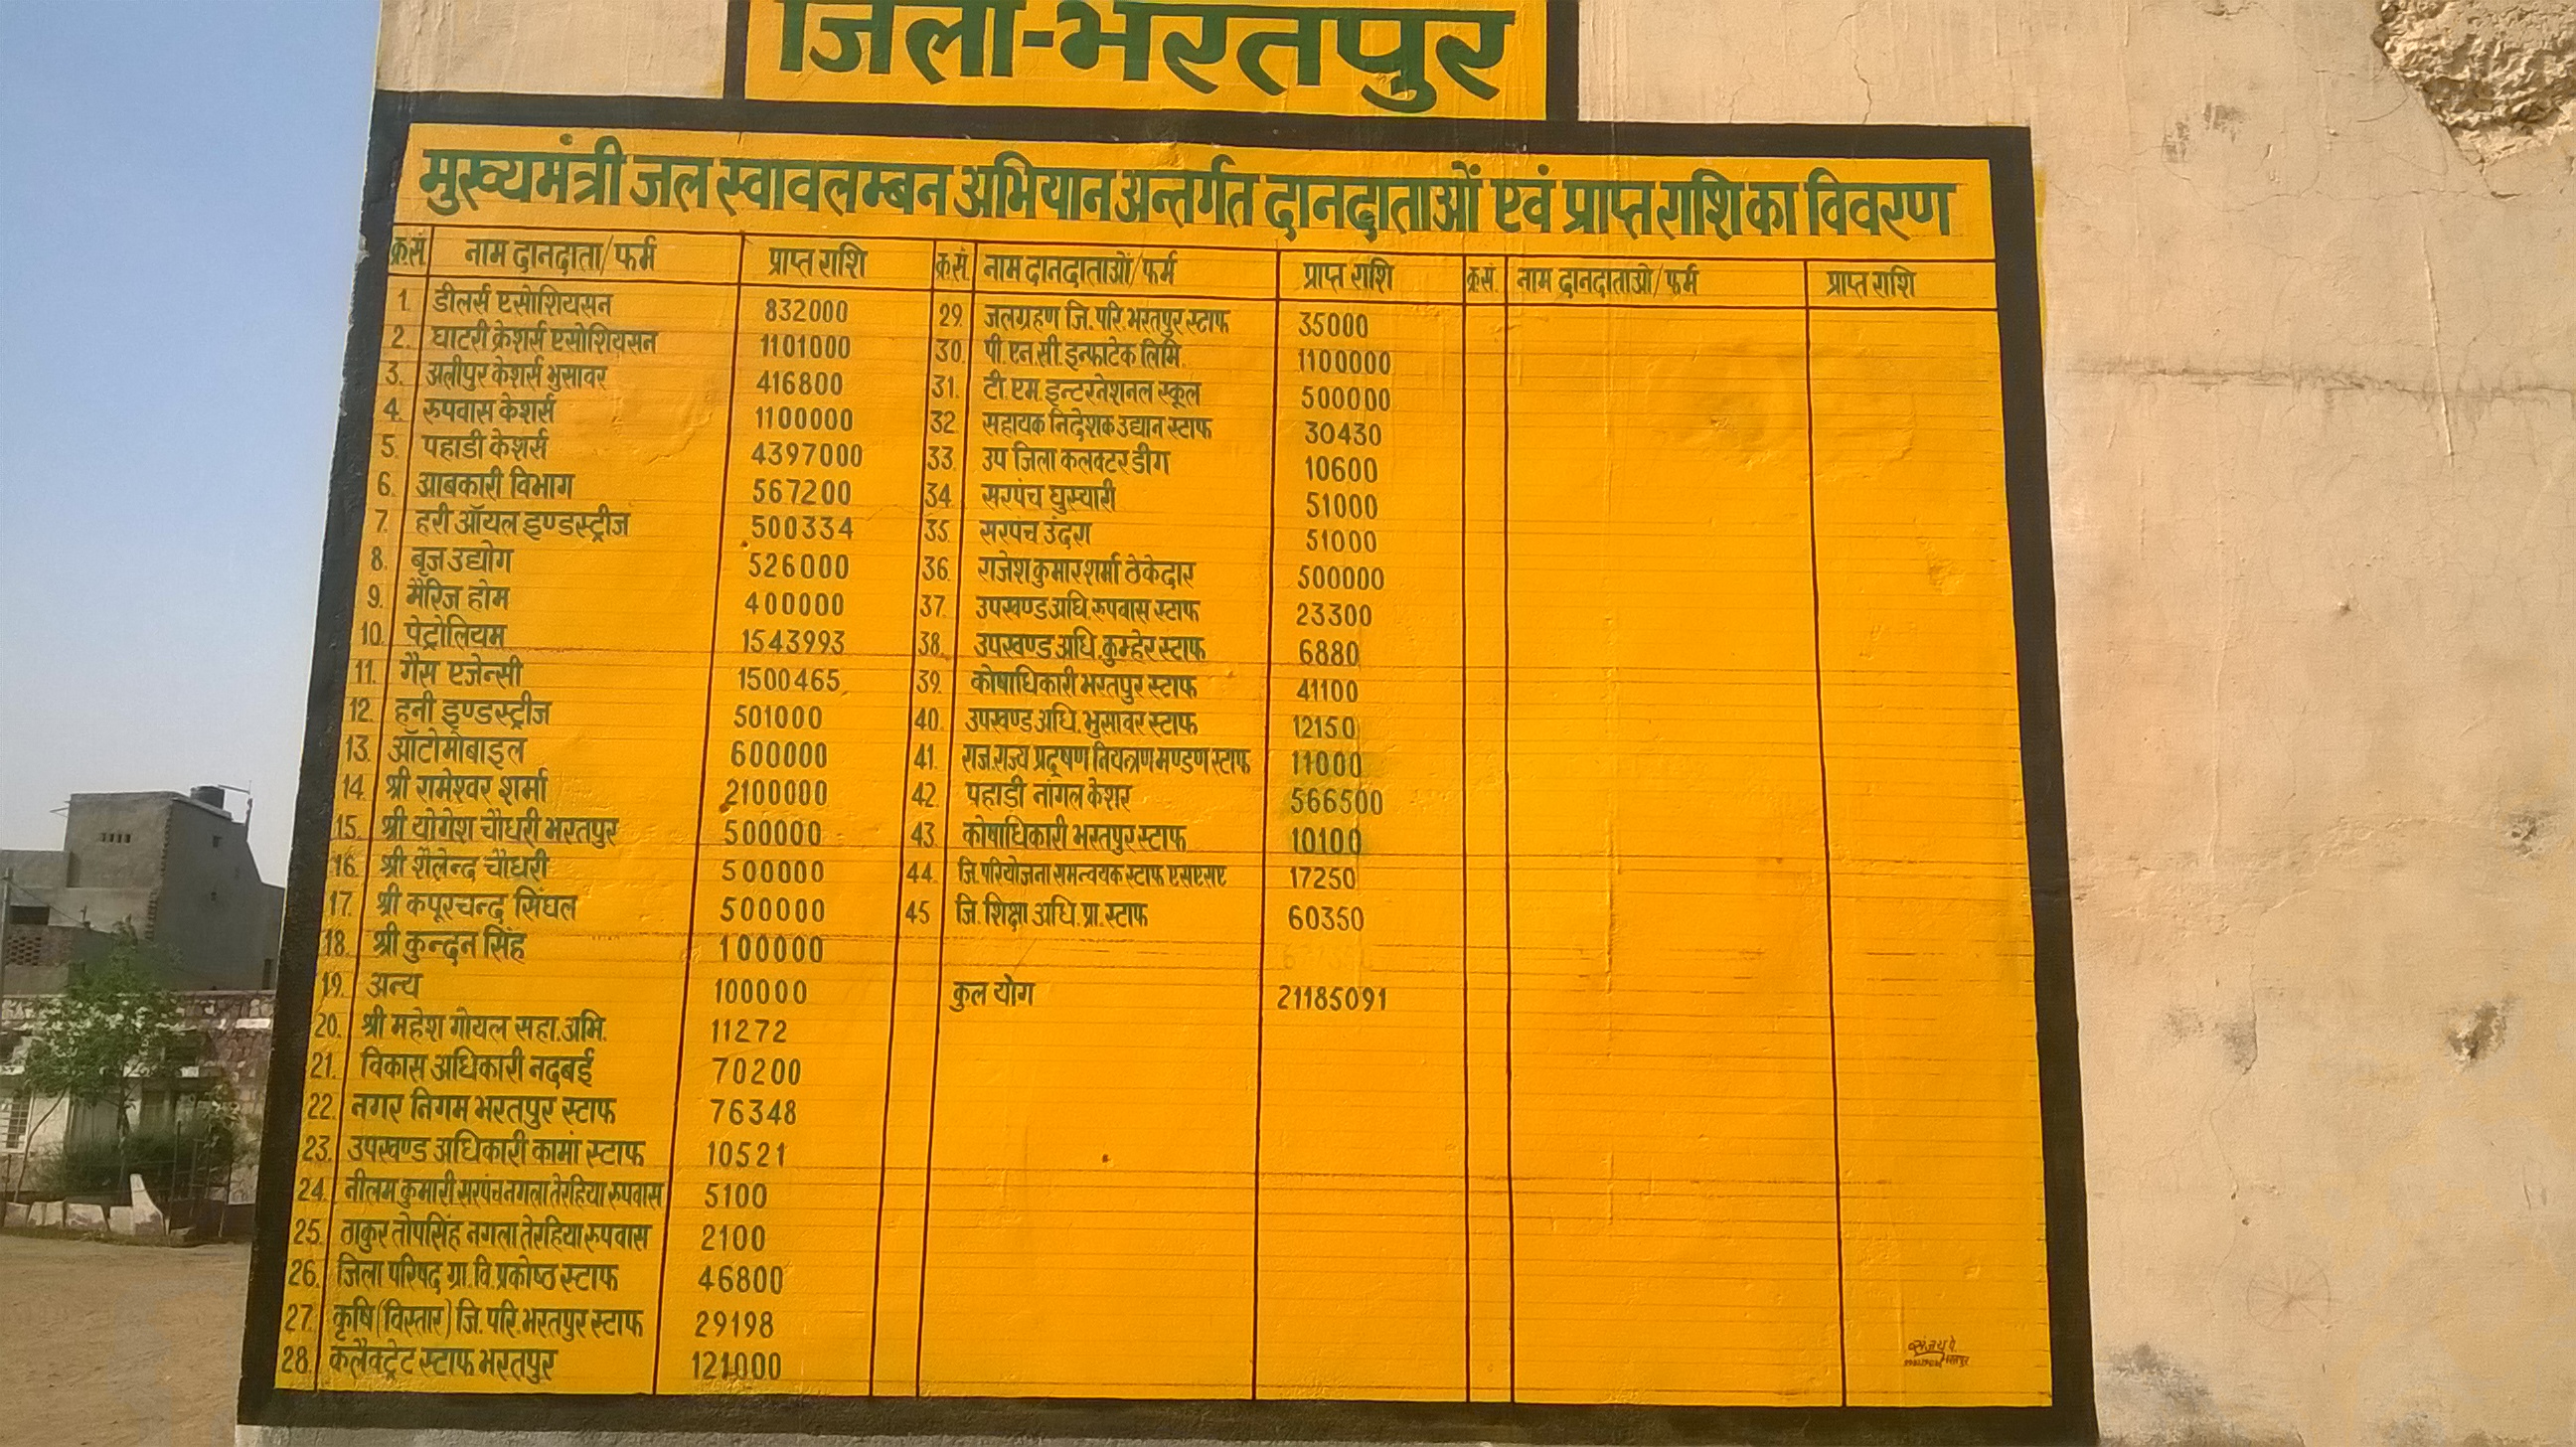 जिला-भरतपुर
मुख्यमंत्री जल स्वावलम्बन अभियान अन्तर्गत दानदाताओं एवं प्राप्त राशि का विवरण
क्र.सं. नाम दानदाता/फर्म प्राप्त राशि क्र.सं. नाम दानदाताओं/फर्म प्राप्त राशि क्र.सं. नाम दानदाताओं/फर्म प्राप्त राशि
1. डीलर्स एसोशियसन 832000
2. घाटरी क्रेशर्स एसोशियसन 1101000
3. अलीपुर केशर्स भुसावर 416800
4. रुपवास केशर्स 1100000
5. पहाडी केशर्स 4397000
6. आबकारी विभाग 567200
7. हरी ऑयल इण्डस्ट्रीज 500334
8. बृज उद्योग 526000
9. मैरिज होम 400000
10. पेट्रोलियम 1543993
11. गैस एजेन्सी 1500465
12. हनी इण्डस्ट्रीज 501000
13. ऑटोमोबाइल 600000
14. श्री रामेश्वर शर्मा 2100000
15. श्री योगेश चौधरी भरतपुर 500000
16. श्री शैलेन्द चौधरी 500000
17. श्री कपूरचन्द सिंघल 500000
18. श्री कुन्दन सिंह 100000
19. अन्य 100000
20. श्री महेश गोयल सहा.अभि. 11272
21. विकास अधिकारी नदबई 70200
22. नगर निगम भरतपुर स्टाफ 76348
23. उपखण्ड अधिकारी कामां स्टाफ 10521
24. नीलम कुमारी सरपंच नगला तेरहिया रुपवास 5100
25. ठाकुर तोपसिंह नगला तेरहिया रुपवास 2100
26. जिला परिषद ग्रा.वि.प्रकोष्ठ स्टाफ 46800
27. कृषि (विस्तार) जि.परि.भरतपुर स्टाफ 29198
28. कलैक्ट्रेट स्टाफ भरतपुर 121000
29. जलग्रहण जि.परि.भरतपुर स्टाफ 35000
30. पी.एन.सी.इन्फाटेक लिमि. 1100000
31. टी.एम.इन्टरनेशनल स्कूल 500000
32. सहायक निदेशक उद्यान स्टाफ 30430
33. उप जिला कलक्टर डीग 10600
34. सरपंच घुस्यारी 51000
35. सरपंच उंदरा 51000
36. राजेश कुमार शर्मा ठेकेदार 500000
37. उपखण्ड अधि.रुपवास स्टाफ 23300
38. उपखण्ड अधि.कुम्हेर स्टाफ 6880
39. कोषाधिकारी भरतपुर स्टाफ 41100
40. उपखण्ड अधि.भुसावर स्टाफ 12150
41. राज.राज्य प्रदूषण नियन्त्रण मण्डण स्टाफ 11000
42. पहाडी नांगल केशर 566500
43. कोषाधिकारी भरतपुर स्टाफ 10100
44. जि.परियोजना समन्वयक स्टाफ एसएसए 17250
45 जि.शिक्षा अधि.प्रा.स्टाफ 60350
कुल योग 21185091
भरतपुर